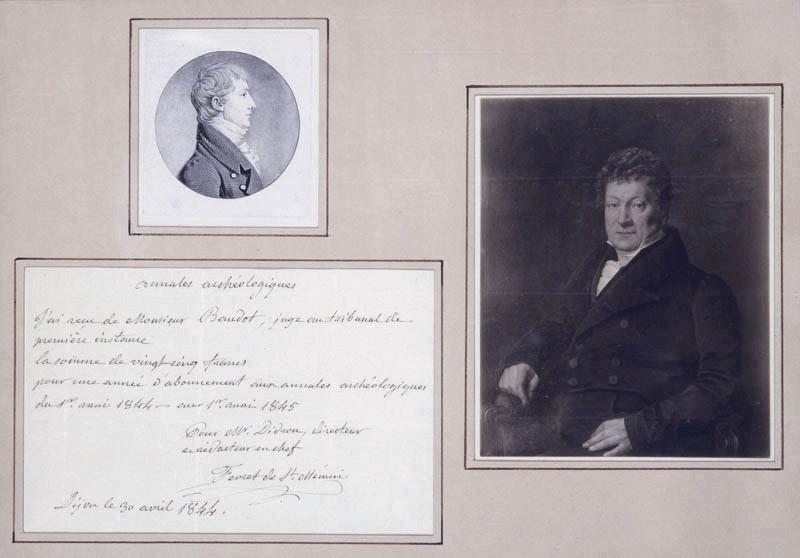 annales archéologiques
J'ai reçu de Monsieur Baudot, juge au tribunal de
première instance
la somme de vingt cinq francs
pour une année d'abonnement aux annales archéologiques
du 1er. mai 1844 — au 1er. mai 1845
Pour Mr. Didron, directeur
et rédacteur en chef
Fevret de St. Mémin
Dijon le 30 avril 1844.